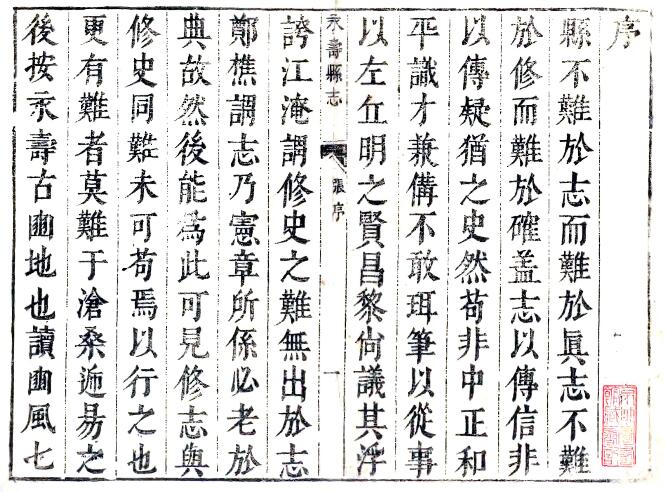 序
縣不難於志而難於眞志不難
於修而難於確盖志以傳信非
以傳疑猶之史然苟非中正和
平識才兼備不敢珥筆以從事
以左丘明之賢昌黎尙議其浮
永壽縣志 張序 一
誇江淹謂修史之難無出於志
鄭樵謂志乃憲章所係必老於
典故然後能為此可見修志與
修史同難未可苟焉以行之也
更有難者莫難于滄桑迤易之
後按永壽古豳地也讀豳風七